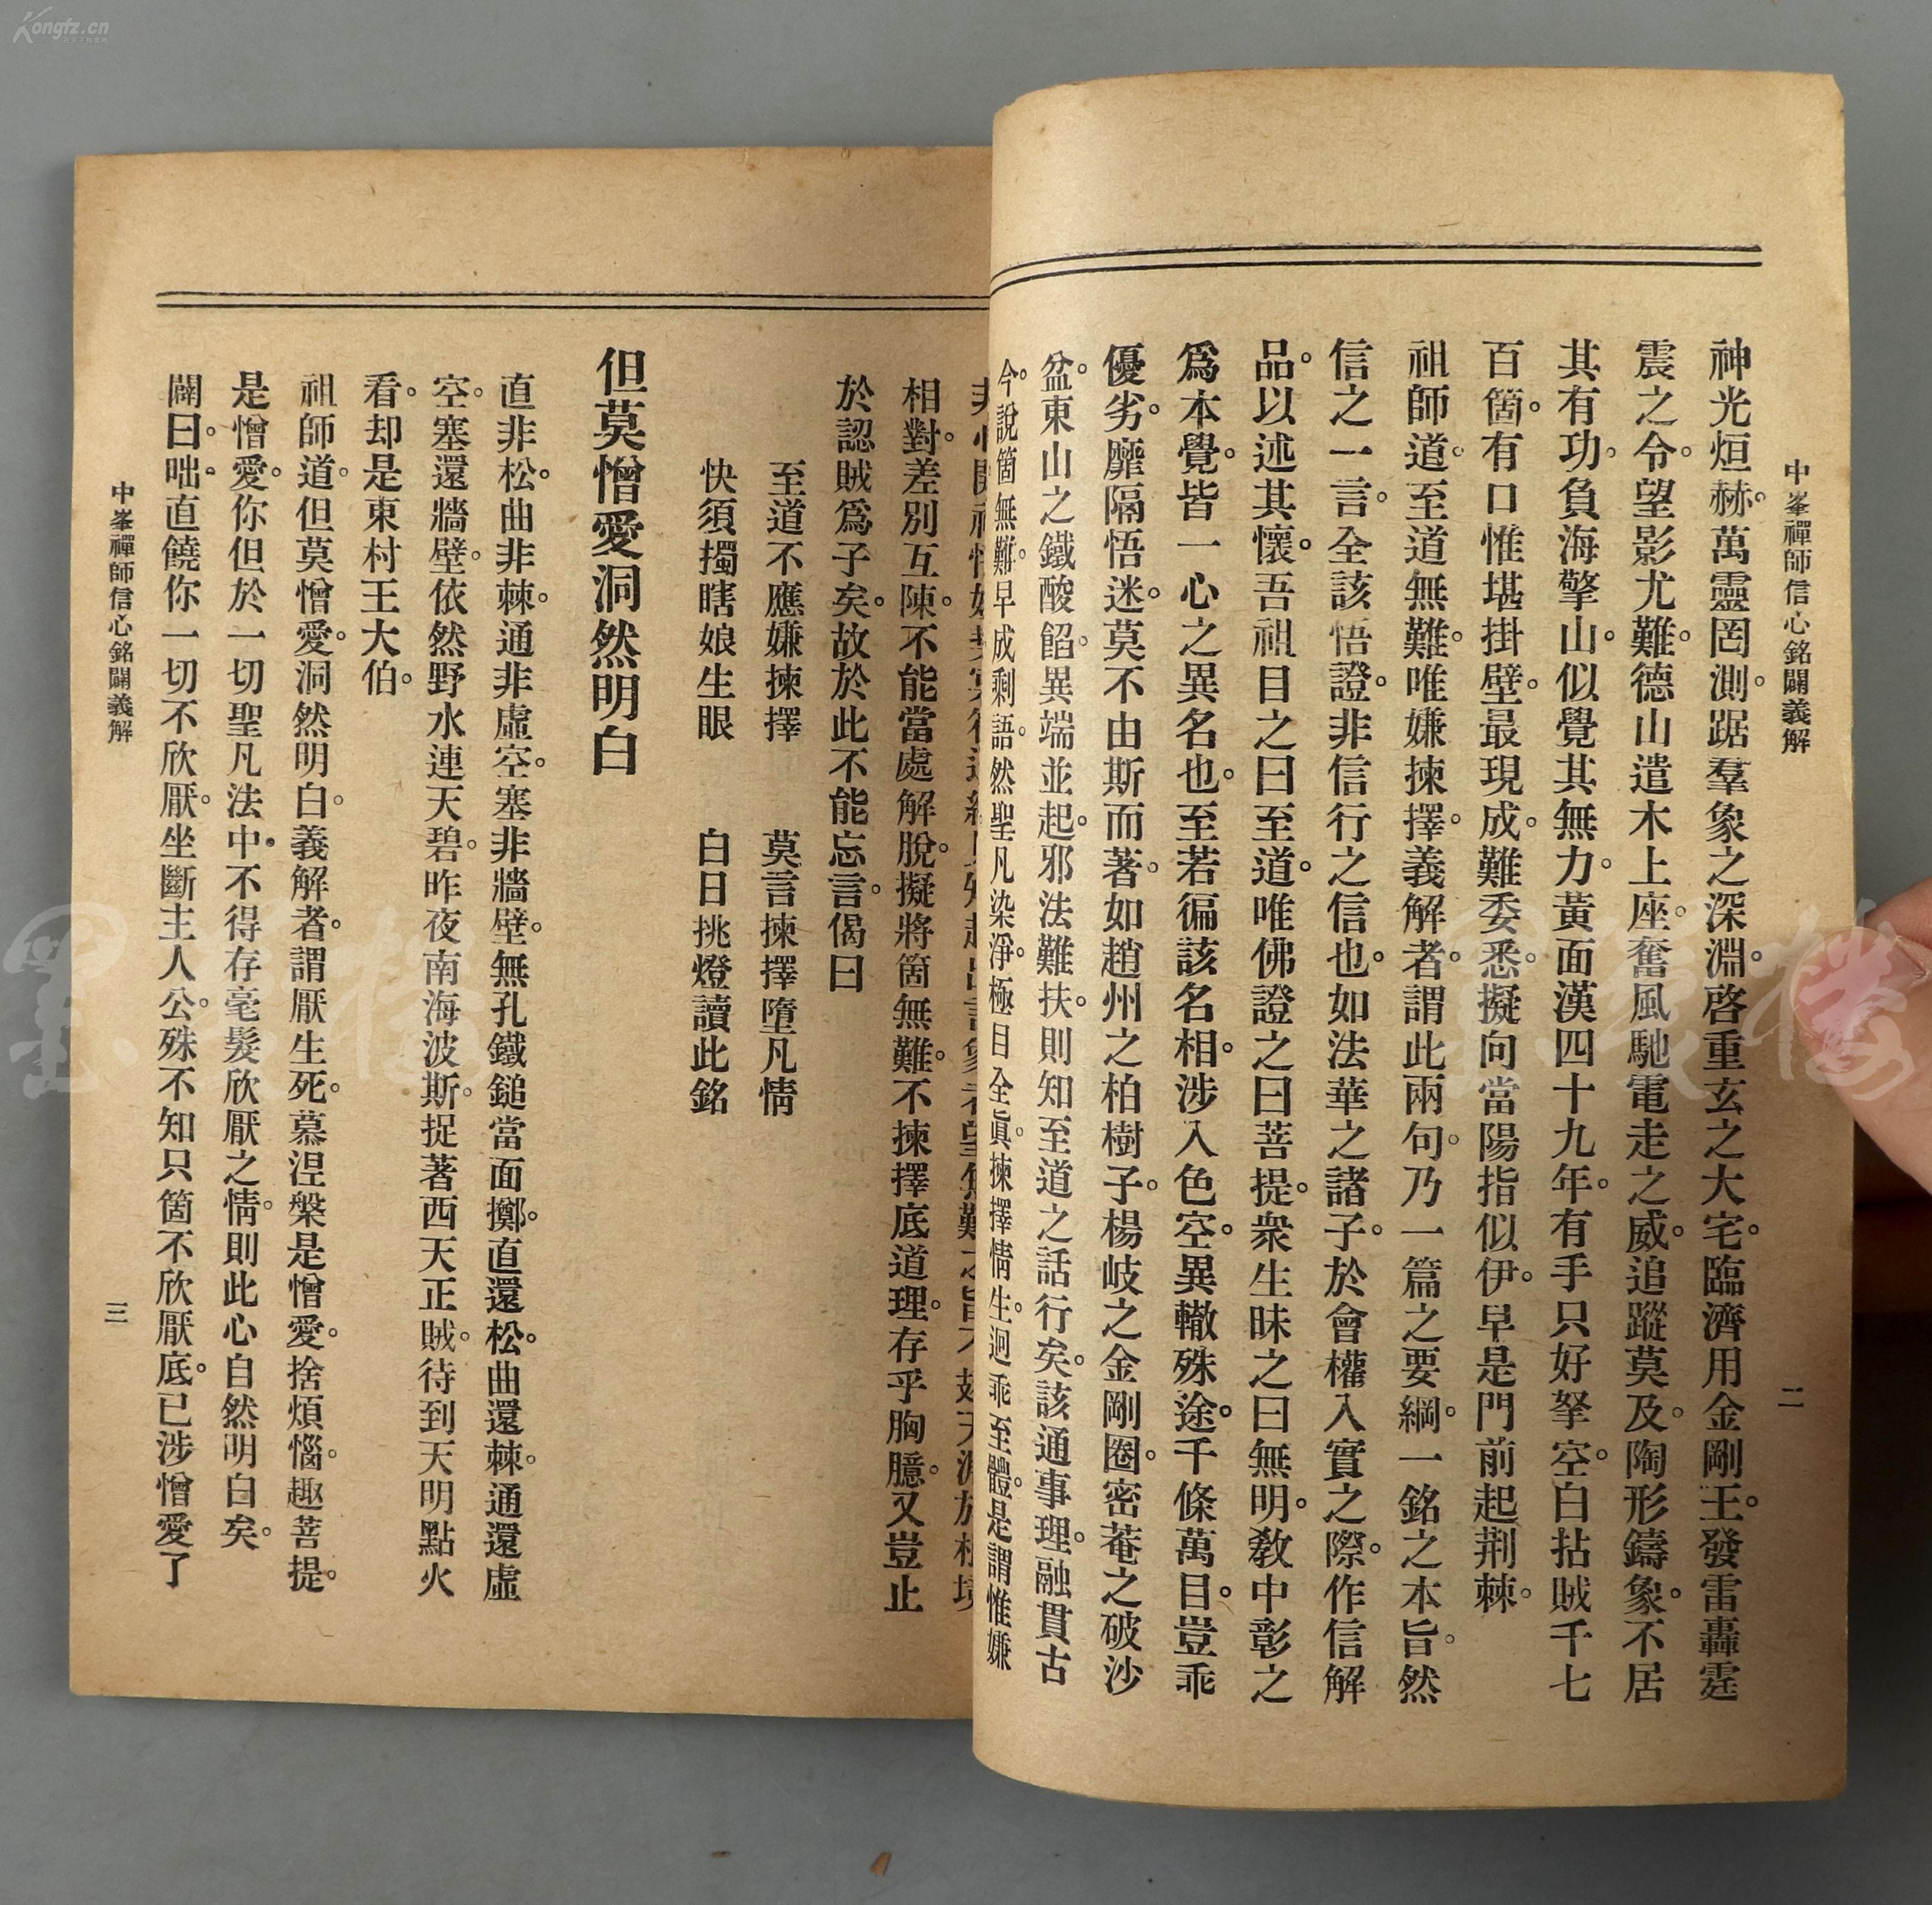 中峯禪師信心銘闢義解
二
神光烜赫。萬靈罔測。踞羣象之深淵。啓重玄之大宅。臨濟用金剛王。發雷轟霆
震之令。望影尤難。德山遣木上座。奮風馳電走之威。追蹤莫及。陶形鑄象。不居
其有功。負海擎山。似覺其無力。黃面漢四十九年。有手只好拏空。白拈賊千七
百箇。有口惟堪掛壁。最現成。難委悉。擬向當陽指似伊。早是門前起荆棘。
祖師道。至道無難。唯嫌揀擇。義解者。謂此兩句。乃一篇之要綱。一銘之本旨。然
信之一言。全該悟證。非信行之信也。如法華之諸子。於會權入實之際。作信解
品。以述其懷。吾祖目之曰至道。唯佛證之曰菩提。衆生昧之曰無明。教中彰之
爲本覺。皆一心之異名也。至若徧該名相。涉入色空。異轍殊途。千條萬目。豈乖
優劣。靡隔悟迷。莫不由斯而著。如趙州之柏樹子。楊岐之金剛圈。密菴之破沙
盆。東山之鐵酸餡。異端並起。邪法難扶。則知至道之話行矣。該通事理。融貫古
今。說箇無難。早成剩語。然聖凡染淨。極目全眞。揀擇情生。迥乖至體。是謂惟嫌
相對。差別互陳。不能當處解脫。擬將箇無難。不揀擇底道理。存乎胸臆。又豈止
於認賊爲子矣。故於此不能忘言。偈曰
至道不應嫌揀擇　莫言揀擇墮凡情
快須擉瞎娘生眼　白日挑燈讀此銘
但莫憎愛洞然明白
直非松。曲非棘。通非虛空。塞非牆壁。無孔鐵鎚當面擲。直還松。曲還棘。通還虛
空。塞還牆壁。依然野水連天碧。昨夜南海波斯。捉著西天正賊。待到天明點火
看。却是東村王大伯。
祖師道。但莫憎愛。洞然明白。義解者。謂厭生死。慕涅槃是憎愛。捨煩惱。趣菩提。
是憎愛。你但於一切聖凡法中。不得存毫髮欣厭之情。則此心自然明白矣。
闢曰。咄。直饒你一切不欣厭。坐斷主人公。殊不知只箇不欣厭底。已涉憎愛了
中峯禪師信心銘闢義解
三
Kongfz.cn